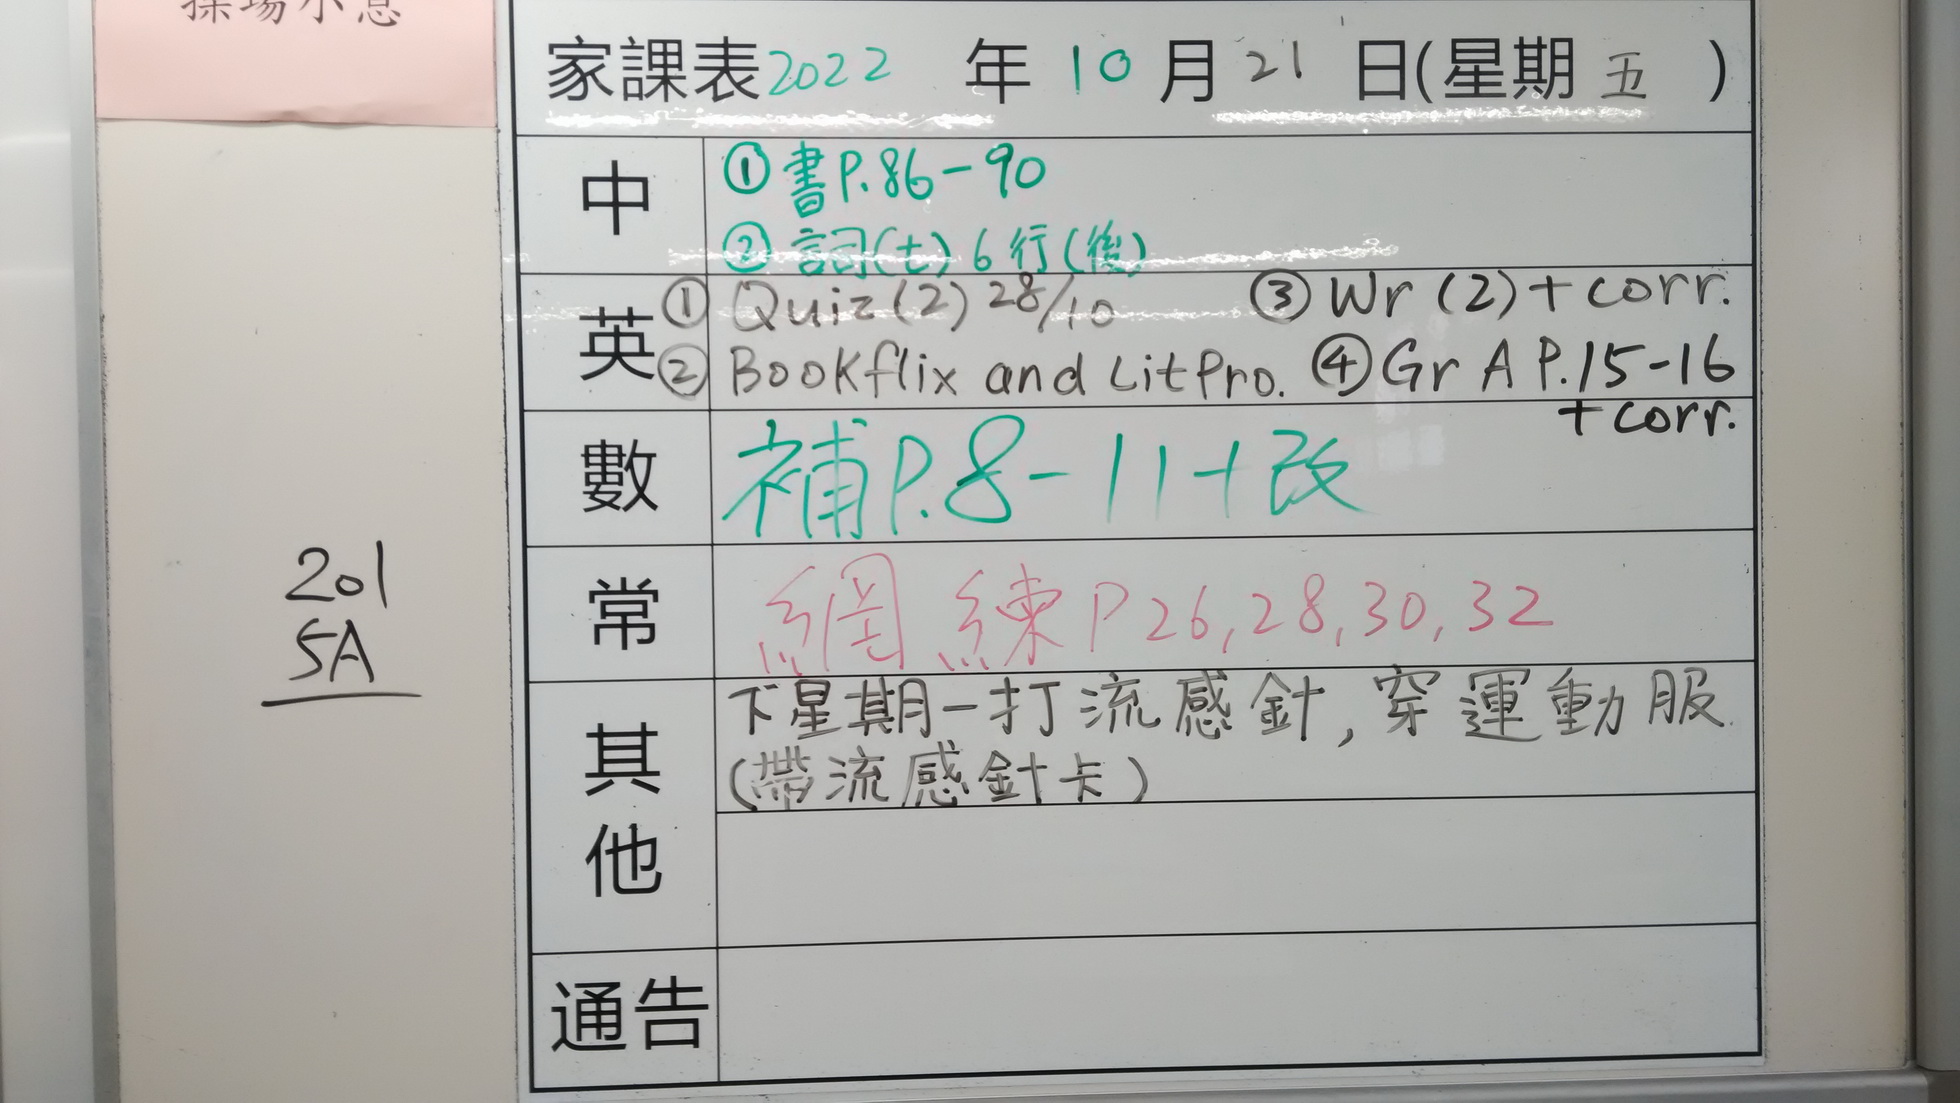 操場小息
家課表2022年10月21日(星期五)
中
①書P.86-90
②詞(七)6行(後)
英
①Quiz(2) 28/10 ③Wr(2)+corr.
②Bookflix and LitPro. ④Gr A P.15-16
+corr.
數
補P.8-11+改
常
網練P26,28,30,32
201
5A
其他
下星期一打流感針,穿運動服
(帶流感針卡)
通告